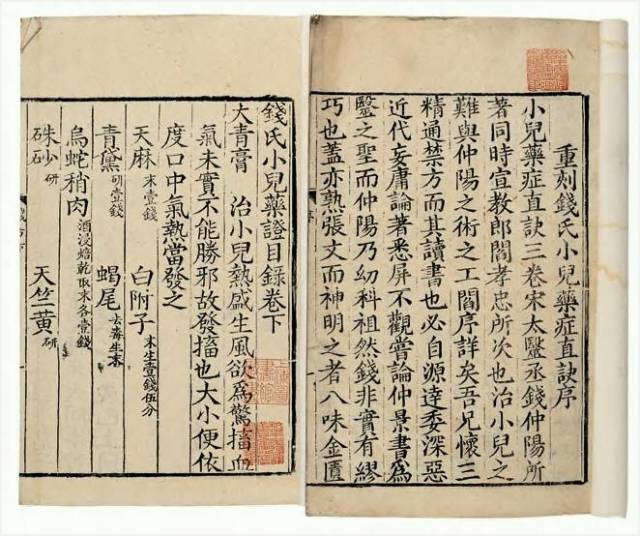 重刻錢氏小兒藥症直訣序
小兒藥症直訣三卷宋太醫丞錢仲陽所
著同時宣教郎閻孝忠所次也治小兒之
難與仲陽之術之工閻序詳矣吾兄懷三
精通禁方而其讀書也必自源達委深惡
近代妄庸論著悉屏不觀嘗論仲景書為
醫之聖而仲陽乃幼科祖然錢非實有繆
巧也蓋亦熟張文而神明之者八味金匱
錢氏小兒藥證目錄卷下
大青膏 治小兒熱盛生風欲為驚搐血
氣未實不能勝邪故發搐也大小便依
度口中氣熱當發之
天麻 末壹錢 白附子 末生壹錢伍分
青黛 研壹錢 蝎尾 去毒生末
烏蛇稍肉 酒浸焙乾取末各壹錢
硃砂 研 天竺黃 研